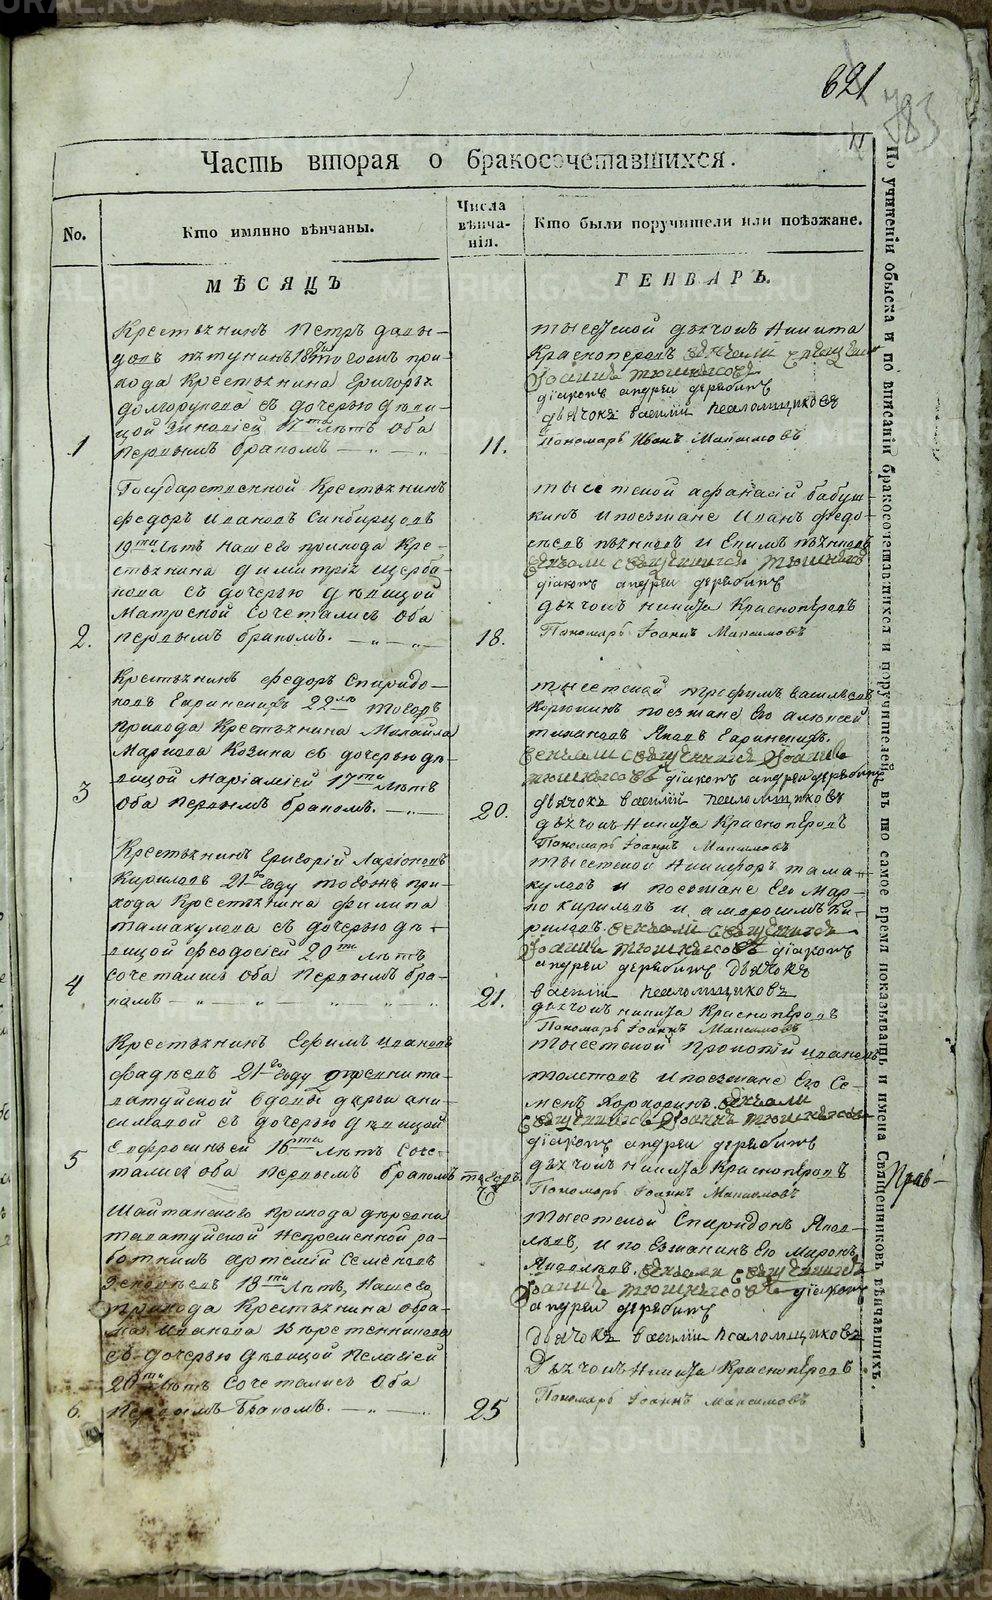 621
783
11
Часть вторая о бракосочетавшихся.
No.
Кто имянно вѣнчаны.
Числа вѣнча-нія.
Кто были поручители или поѣзжане.
МѢСЯЦЪ
ГЕНВАРЬ.
Крестьянинъ Петръ давы-
довъ пѣтунинъ 18 того при-
хода Крестьянина Григорья
долгорукова съ дочерью дѣви-
цой Зиновіей 17та лѣтъ Оба
1
Первымъ бракомъ
11.
тысецкой дьячокъ Никита
Красноперовъ вѣнчали священникъ
Іоаннъ
діаконъ андрей дерябинъ
дьячокъ василій псаломщиковъ
Пономарь Иванъ Максимовъ
Государственной Крестьянинъ
федоръ Ивановъ Синбирцовъ
19ти лѣтъ нашего прихода Кре-
стьянина димитрія щерба-
кова съ дочерью дѣвицой
Матроной Сочетались Оба
2.
первымъ бракомъ.
18.
тысетской афанасій бабуш-
кинъ и поезжане Иванъ федо-
и Ефимъ
вѣнчали священникъ
діаконъ андрей дерябинъ
дьячокъ никита Красноперовъ
Пономарь Іоаннъ Максимовъ
Крестьянинъ федоръ Спиридо-
новъ 22 того жъ
Прихода Крестьянина Михайла
Маркова Козина съ дочерью дѣ-
вицой Маріамієй 17ти лѣтъ
3
Оба первымъ бракомъ.
20.
тысетской трефимъ васильевъ
Корюкинъ поезжане Его алексѣй
Яковъ
вѣнчали священникъ Іоаннъ
діаконъ андрей дерябинъ
дьячокъ василій псаломщиковъ
дьячокъ Никита Красноперовъ
Пономарь Іоаннъ Максимовъ
Крестьянинъ Григорій Ларіоновъ
Кириловъ 21го году того жъ при-
хода Крестьянина филипа
тамакулова съ дочерью дѣ-
вицой феодосіей 20ти лѣтъ
4
сочетались Оба Первымъ бра-
комъ
21.
тысетской Никифоръ тама-
куловъ и поезжане Его Мар-
ко кириловъ и амвросимъ Ки-
риловъ. вѣнчали священникъ
Іоаннъ діаконъ
андрей дерябинъ дьячокъ
василій псаломщиковъ
дьячокъ никита Красноперовъ
Пономарь Іоаннъ Максимовъ
Крестьянинъ Ефимъ Ивановъ
фадѣевъ 21го году деревни та-
ватуйской вдовы дарьи ани-
симовой съ дочерью дѣвицой
5
Ефросиньей 16ти лѣтъ Соче-
тались оба первымъ бракомъ
тысетской Прокопій Ивановъ
толстовъ и поезжане Его Се-
менъ вѣнчали
священникъ Іоаннъ
діаконъ андрей дерябинъ
дьячокъ никита Красноперовъ
Пономарь Іоаннъ Максимовъ
Шайтанскаго прихода дѣревни
таватуйской непременной ра-
ботникъ артемій Семеновъ
18ти лѣтъ, Нашего
прихода Крестьянина абра-
ма Иванова Верстенникова
съ дочерью дѣвицой Пелагіей
20ти лѣтъ Сочетались Оба
6.
Первымъ Бракомъ.
25
тысетской Спиридонъ Яков-
левъ, и поезжанинъ Его Миронъ
Яковлевъ. вѣнчали священникъ
Іоаннъ діаконъ
андрей дерябинъ
дьячокъ василій псаломщиковъ
Дьячокъ Никита Красноперовъ
Пономарь Іоаннъ Максимовъ
По учиненіи обыска и по вписаніи бракосочетавшихся и поручителей, въ то самое время показывать и имена Священниковъ вѣнчавшихъ.
METRIKI.GASO-URAL.RU